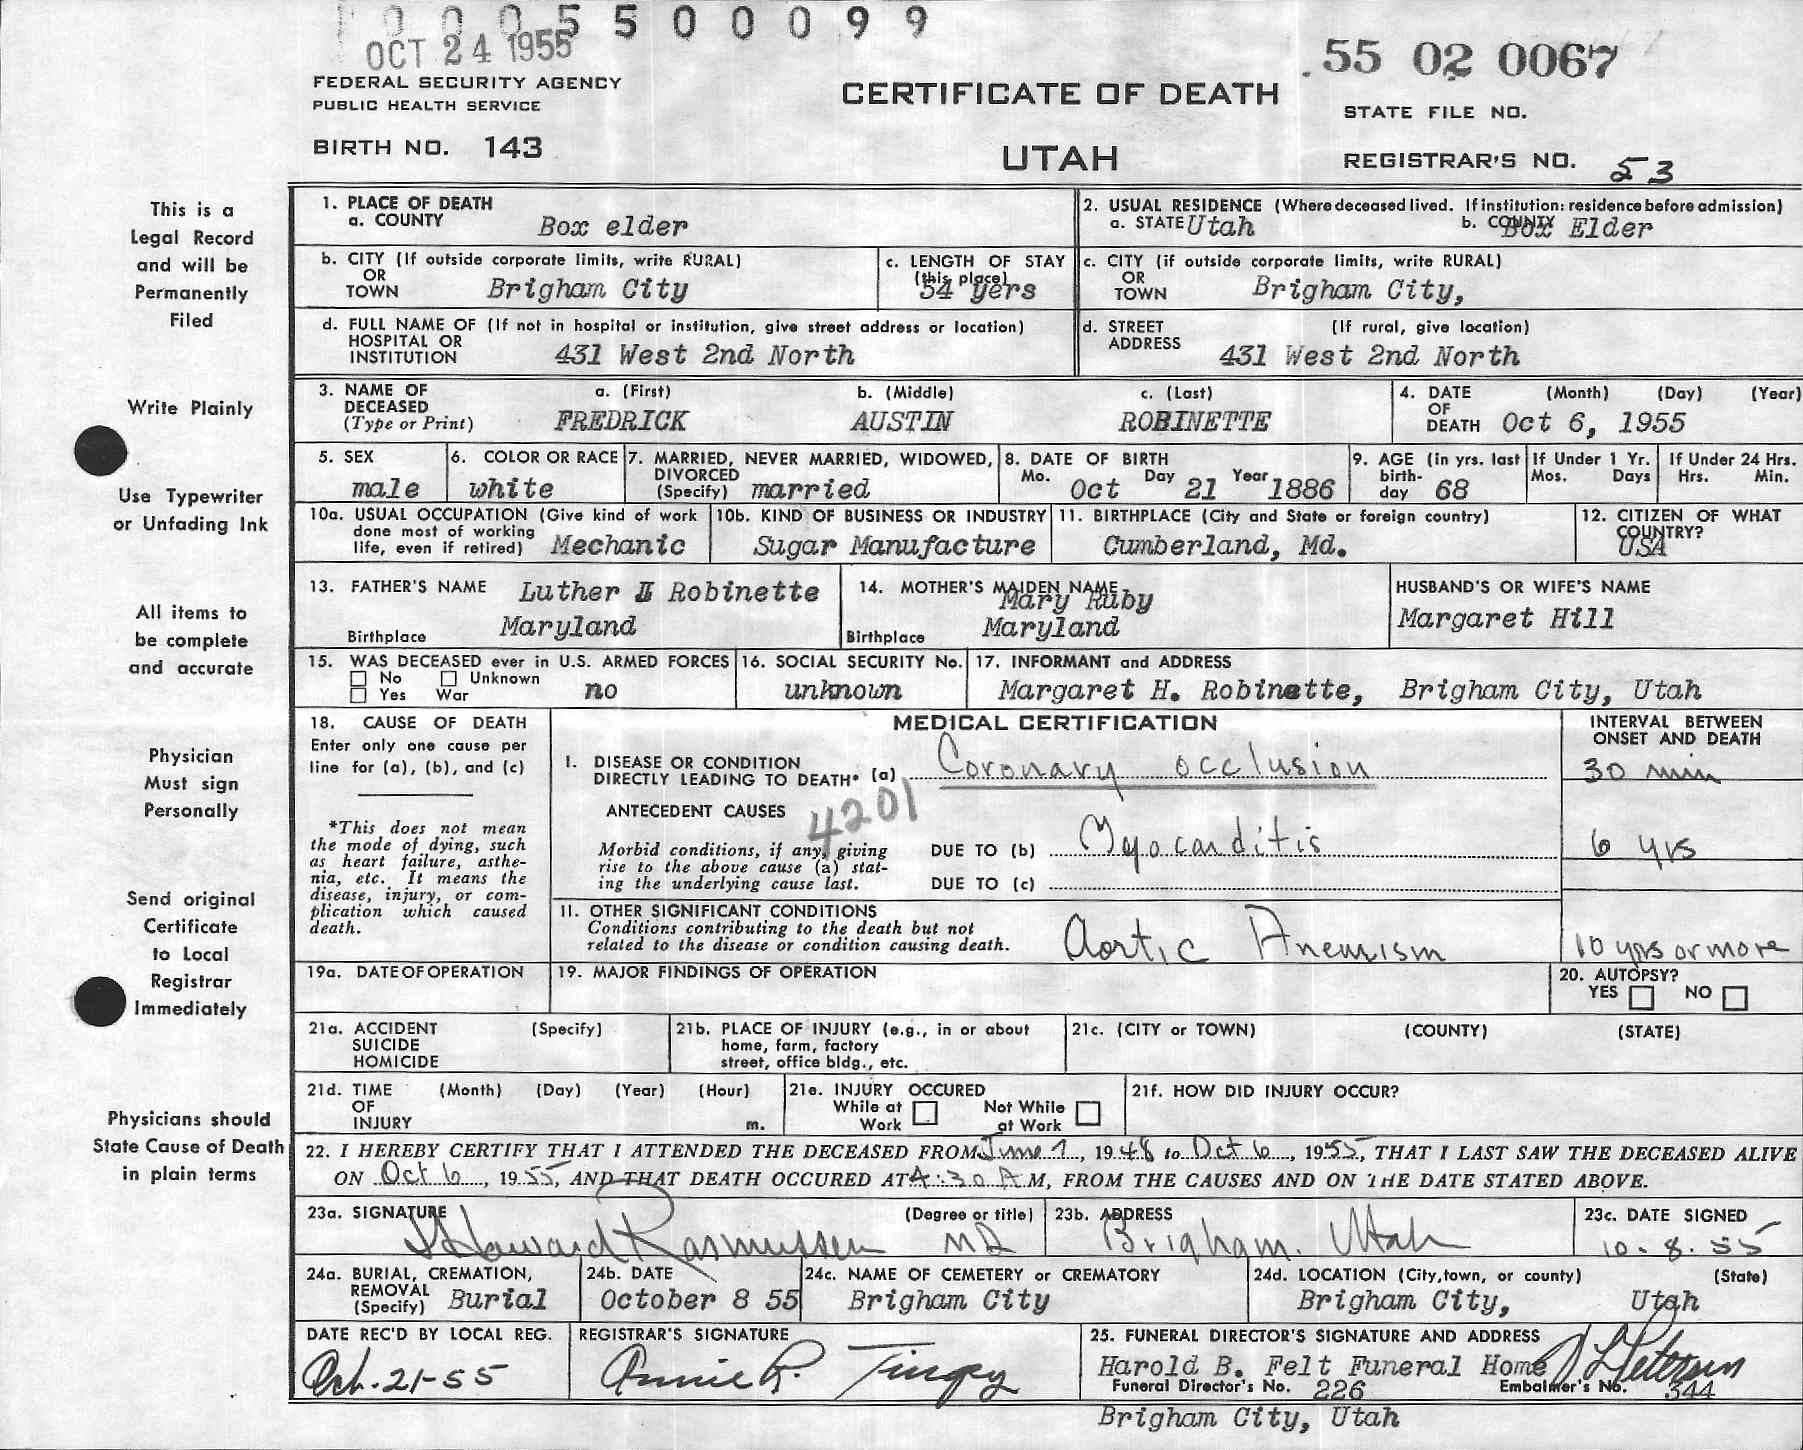 0 0 0 5 5 0 0 0 9 9
OCT 24 1955
.55 02 0067
FEDERAL SECURITY AGENCY
PUBLIC HEALTH SERVICE
CERTIFICATE OF DEATH
STATE FILE NO.
BIRTH NO. 143
UTAH
REGISTRAR'S NO. 53
This is a
Legal Record
and will be
Permanently
Filed
Write Plainly
Use Typewriter
or Unfading Ink
All items to
be complete
and accurate
Physician
Must sign
Personally
Send original
Certificate
to Local
Registrar
Immediately
Physicians should
State Cause of Death
in plain terms
1. PLACE OF DEATH
a. COUNTY Box elder
2. USUAL RESIDENCE (Where deceased lived. If institution: residence before admission)
a. STATE Utah b. COUNTY Box Elder
b. CITY (If outside corporate limits, write RURAL)
OR
TOWN Brigham City
c. LENGTH OF STAY
(this place)
54 yers
c. CITY (if outside corporate limits, write RURAL)
OR
TOWN Brigham City,
d. FULL NAME OF (If not in hospital or institution, give street address or location)
HOSPITAL OR
INSTITUTION 431 West 2nd North
d. STREET (If rural, give location)
ADDRESS 431 West 2nd North
3. NAME OF a. (First) b. (Middle) c. (Last)
DECEASED
(Type or Print) FREDRICK AUSTIN ROBINETTE
4. DATE (Month) (Day) (Year)
OF
DEATH Oct 6, 1955
5. SEX
male
6. COLOR OR RACE
white
7. MARRIED, NEVER MARRIED, WIDOWED,
DIVORCED
(Specify) married
8. DATE OF BIRTH
Mo. Oct Day 21 Year 1886
9. AGE (in yrs. last
birth-
day 68
If Under 1 Yr.
Mos. Days
If Under 24 Hrs.
Hrs. Min.
10a. USUAL OCCUPATION (Give kind of work
done most of working
life, even if retired) Mechanic
10b. KIND OF BUSINESS OR INDUSTRY
Sugar Manufacture
11. BIRTHPLACE (City and State or foreign country)
Cumberland, Md.
12. CITIZEN OF WHAT
COUNTRY?
USA
13. FATHER'S NAME Luther Robinette
Birthplace Maryland
14. MOTHER'S MAIDEN NAME
Mary Ruby
Birthplace Maryland
HUSBAND'S OR WIFE'S NAME
Margaret Hill
15. WAS DECEASED ever in U.S. ARMED FORCES
No Unknown
Yes War no
16. SOCIAL SECURITY No.
unknown
17. INFORMANT and ADDRESS
Margaret H. Robinette, Brigham City, Utah
18. CAUSE OF DEATH
Enter only one cause per
line for (a), (b), and (c)
*This does not mean
the mode of dying, such
as heart failure, asthe-
nia, etc. It means the
disease, injury, or com-
plication which caused
death.
MEDICAL CERTIFICATION
INTERVAL BETWEEN
ONSET AND DEATH
I. DISEASE OR CONDITION
DIRECTLY LEADING TO DEATH* (a) Coronary occlusion 30 min
ANTECEDENT CAUSES 4201
Morbid conditions, if any, giving
rise to the above cause (a) stat-
ing the underlying cause last.
DUE TO (b) Myocarditis 6 yrs
DUE TO (c)
11. OTHER SIGNIFICANT CONDITIONS
Conditions contributing to the death but not
related to the disease or condition causing death.
Aortic Aneurism 10 yrs or more
19a. DATE OF OPERATION
19. MAJOR FINDINGS OF OPERATION
20. AUTOPSY?
YES NO
21a. ACCIDENT (Specify)
SUICIDE
HOMICIDE
21b. PLACE OF INJURY (e.g., in or about
home, farm, factory
street, office bldg., etc.
21c. (CITY or TOWN) (COUNTY) (STATE)
21d. TIME (Month) (Day) (Year) (Hour)
OF
INJURY m.
21e. INJURY OCCURED
While at Not While
Work at Work
21f. HOW DID INJURY OCCUR?
22. I HEREBY CERTIFY THAT I ATTENDED THE DECEASED FROM June 1, 1948 to Oct 6, 1955, THAT I LAST SAW THE DECEASED ALIVE
ON Oct 6, 1955, AND THAT DEATH OCCURED AT 4:30 A M, FROM THE CAUSES AND ON THE DATE STATED ABOVE.
23a. SIGNATURE (Degree or title)
Howard Rasmussen MD
23b. ADDRESS
Brigham, Utah
23c. DATE SIGNED
10-8-55
24a. BURIAL, CREMATION,
REMOVAL
(Specify) Burial
24b. DATE
October 8 55
24c. NAME OF CEMETERY or CREMATORY
Brigham City
24d. LOCATION (City, town, or county) (State)
Brigham City, Utah
DATE REC'D BY LOCAL REG.
Oct. 21-55
REGISTRAR'S SIGNATURE
Annie R. Tingey
25. FUNERAL DIRECTOR'S SIGNATURE AND ADDRESS
Harold B. Felt Funeral Home Petersen
Funeral Director's No. 226 Embalmer's No. 344
Brigham City, Utah